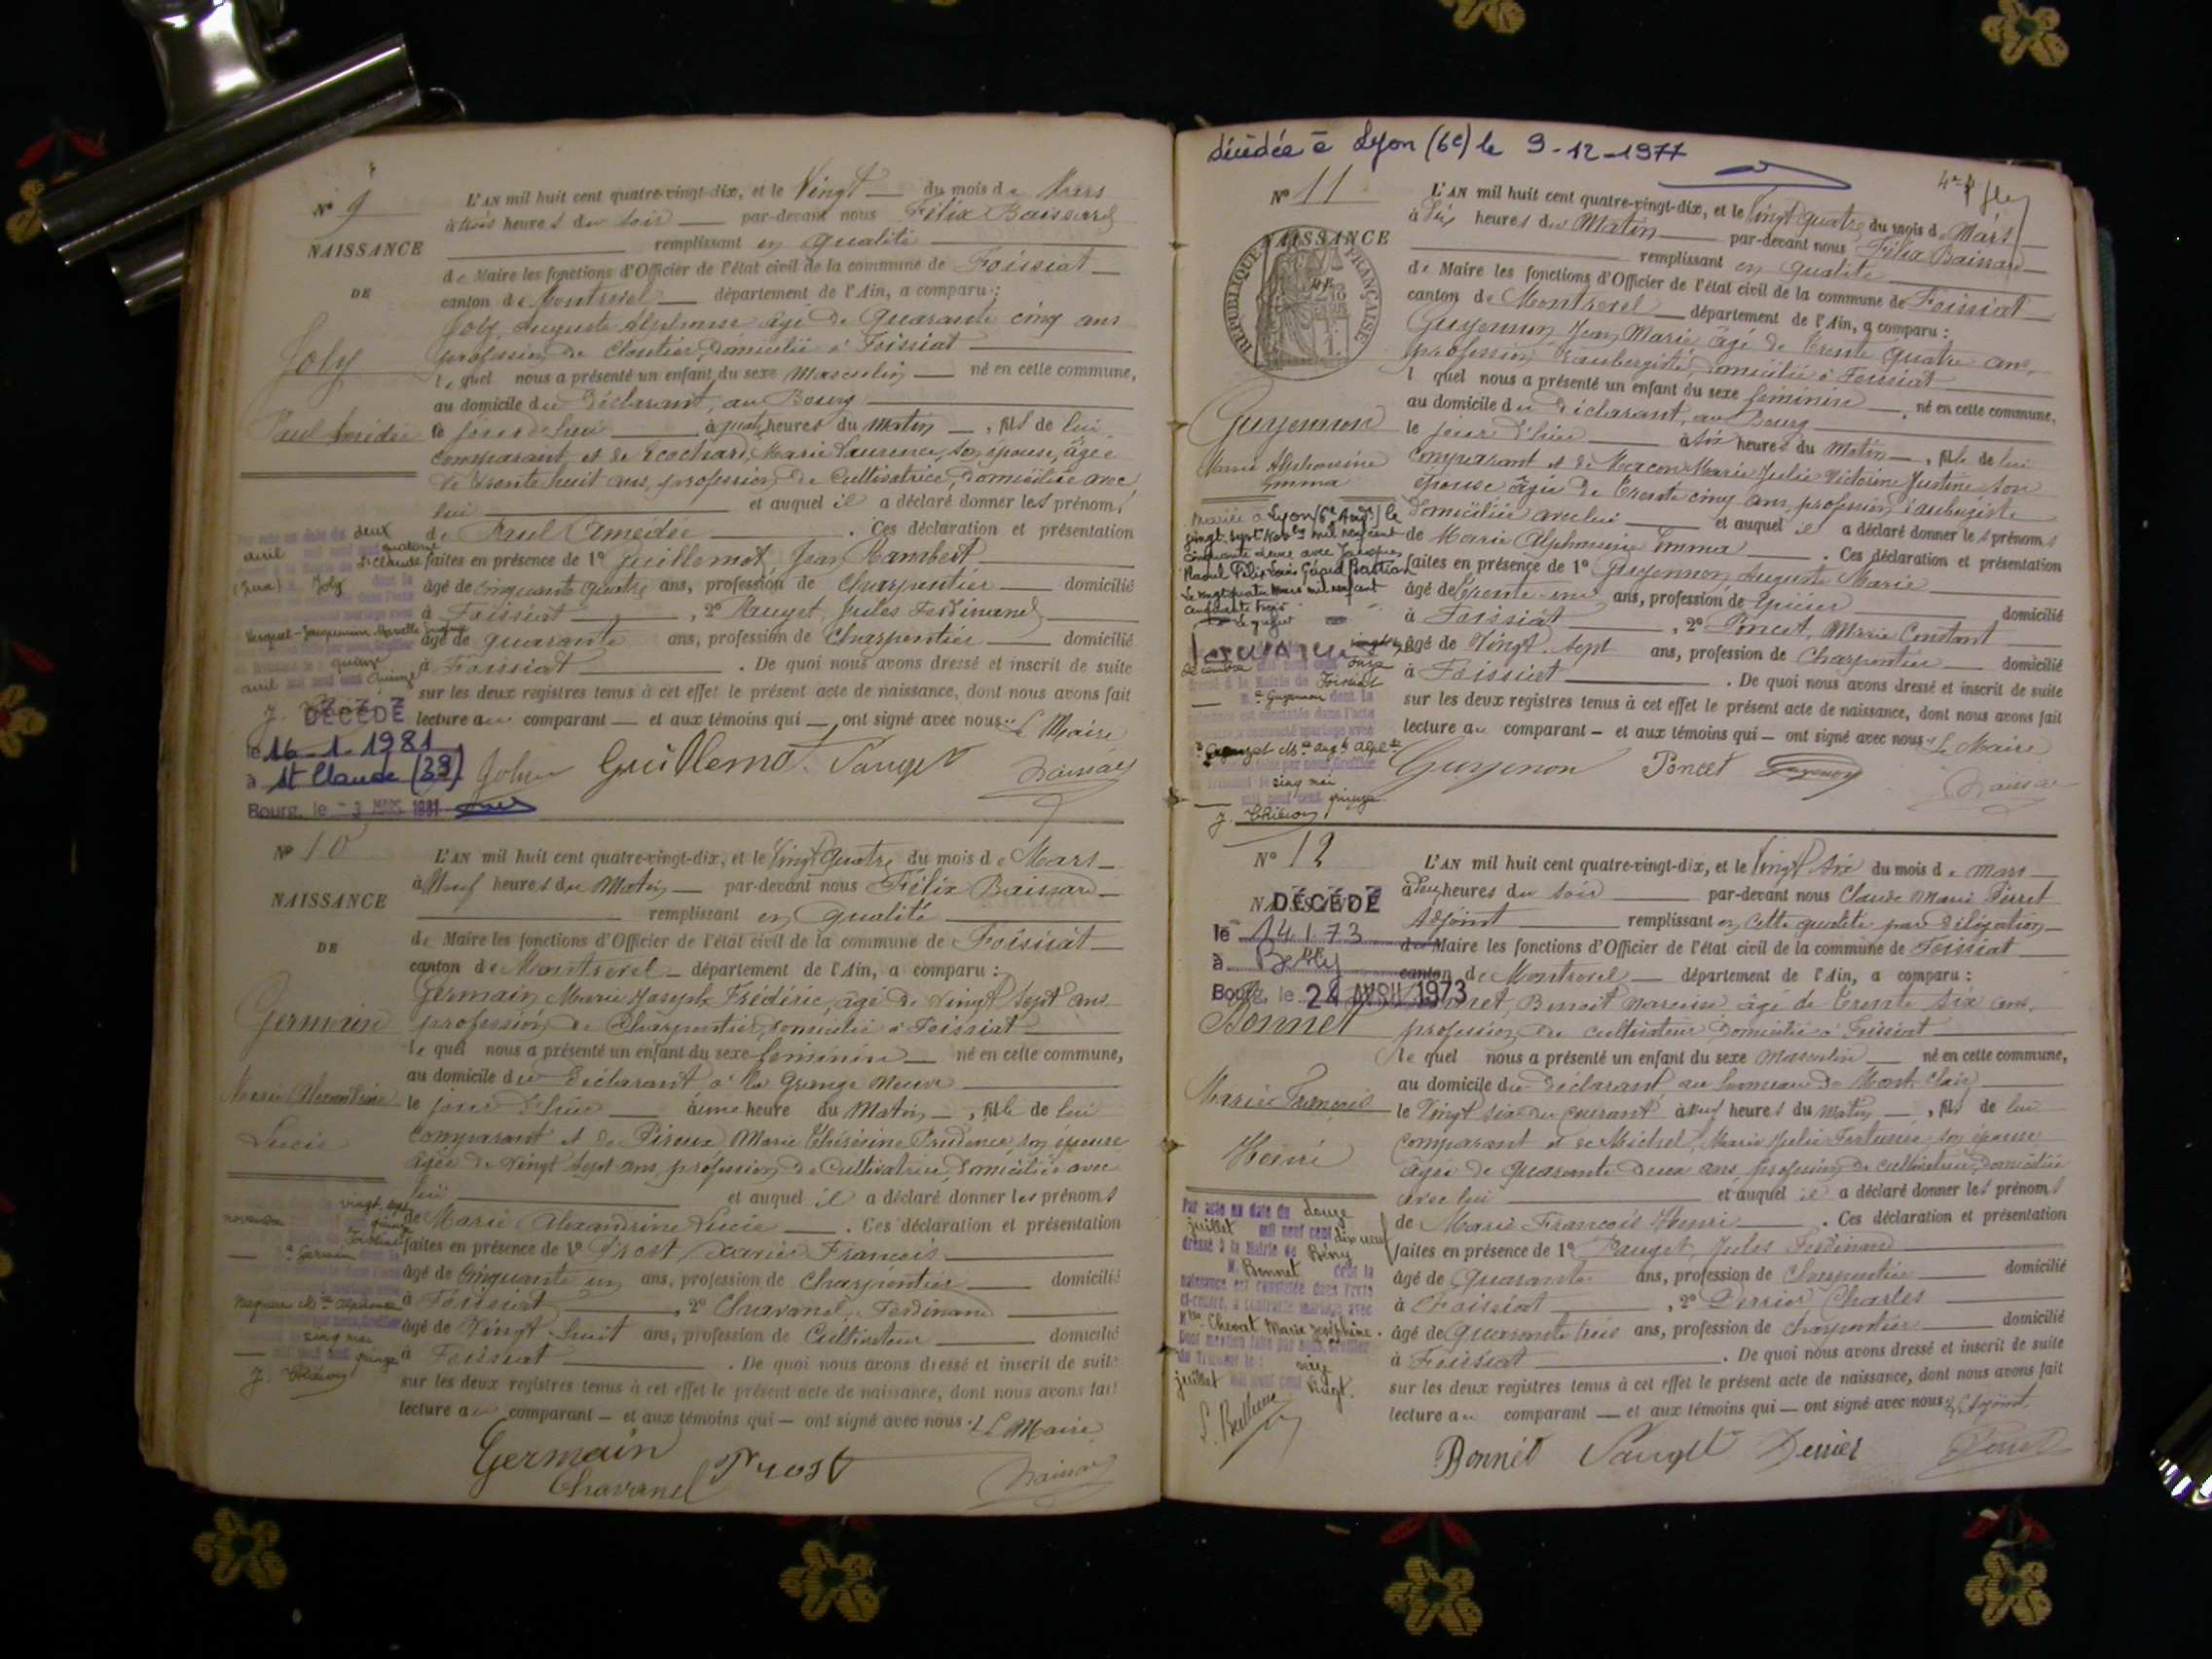 Nº 9
NAISSANCE
DE
Joly
Paul Amédée
L'AN mil huit cent quatre-vingt-dix, et le Vingt du mois de Mars
à trois heures du soir par-devant nous Félix Baissard
remplissant en qualité
de Maire les fonctions d'Officier de l'état civil de la commune de Foissiat
canton de Montrevel département de l'Ain, a comparu :
Joly Auguste Alphonse âgé de Quarante cinq ans
profession de Cloutier, domicilié à Foissiat
lequel nous a présenté un enfant du sexe Masculin né en cette commune,
au domicile du Déclarant, au Bourg
le jour d'hui à quatre heures du Matin, fils de lui
comparant et de Ecochard, Marie Laurence, son épouse, âgée
de trente huit ans, profession de Cultivatrice, domiciliée avec
lui et auquel il a déclaré donner les prénoms
de Paul Amédée. Ces déclaration et présentation
faites en présence de 1º Guillemot, Jean
âgé de Cinquante quatre ans, profession de Charpentier domicilié
à Foissiat, 2º Pauget, Jules Ferdinand
âgé de quarante ans, profession de Charpentier domicilié
à Foissiat. De quoi nous avons dressé et inscrit de suite
sur les deux registres tenus à cet effet le présent acte de naissance, dont nous avons fait
lecture au comparant et aux témoins qui ont signé avec nous. Le Maire
deux
avril
quatorze
St Claude
(Jura) Joly
quinze
avril
DÉCÉDÉ
le 16-1-1981
à St Claude (39)
Bourg, le -3 MARS 1981
Guillemot Pauget
Nº 10
NAISSANCE
DE
Germain
Marie Alexandrine
Lucie
L'AN mil huit cent quatre-vingt-dix, et le Vingt quatre du mois de Mars
à Neuf heures du Matin par-devant nous Félix Baissard
remplissant en qualité
de Maire les fonctions d'Officier de l'état civil de la commune de Foissiat
canton de Montrevel département de l'Ain, a comparu :
Germain Marie Joseph Frédéric, âgé de Vingt sept ans
profession de Charpentier, domicilié à Foissiat
lequel nous a présenté un enfant du sexe féminin né en cette commune,
au domicile du Déclarant à la Grange Neuve
le jour d'hui à une heure du Matin, fille de lui
comparant et de Piroux Marie Thérésine Prudence son épouse
âgée de Vingt sept ans, profession de Cultivatrice, domiciliée avec
lui et auquel il a déclaré donner les prénoms
de Marie Alexandrine Lucie. Ces déclaration et présentation
faites en présence de 1º Prost François
âgé de Cinquante un ans, profession de Charpentier domicilié
à Foissiat, 2º Chavanel, Ferdinand
âgé de Vingt huit ans, profession de Cultivateur domicilié
à Foissiat. De quoi nous avons dressé et inscrit de suite
sur les deux registres tenus à cet effet le présent acte de naissance, dont nous avons fait
lecture au comparant et aux témoins qui ont signé avec nous. Le Maire
vingt sept
novembre
Foissiat
Germain
cinq mai
Germain Prost
Chavanel
décédée à Lyon (6e) le 9-12-1977
Nº 11
NAISSANCE
DE
RÉPUBLIQUE FRANÇAISE
Guyennon
Marie Alphonsine
Emma
L'AN mil huit cent quatre-vingt-dix, et le Vingt quatre du mois de Mars
à Dix heures du Matin par-devant nous Félix Baissard
remplissant en qualité
de Maire les fonctions d'Officier de l'état civil de la commune de Foissiat
canton de Montrevel département de l'Ain, a comparu :
Guyennon Jean Marie âgé de Trente quatre ans,
profession d'aubergiste, domicilié à Foissiat
lequel nous a présenté un enfant du sexe féminin, né en cette commune,
au domicile du Déclarant, au Bourg
le jour d'hui à six heures du Matin, fille de lui
comparant et de Marie Julie Victorine Justine son
épouse âgée de Trente cinq ans, profession d'aubergiste
domiciliée avec lui et auquel il a déclaré donner les prénoms
de Marie Alphonsine Emma. Ces déclaration et présentation
faites en présence de 1º Guyennon, Auguste Marie
âgé de Trente-un ans, profession de Epicier domicilié
à Foissiat, 2º Poncet, Marie Constant
âgé de Vingt sept ans, profession de Charpentier domicilié
à Foissiat. De quoi nous avons dressé et inscrit de suite
sur les deux registres tenus à cet effet le présent acte de naissance, dont nous avons fait
lecture au comparant et aux témoins qui ont signé avec nous. Le Maire
Mariée à Lyon (6e Arr) le
vingt sept Nov mil neuf cent
cinquante deux avec Jacques
Raoul Félix Louis Gérard Bastian
Le vingt quatre Mars mil neuf cent
cinquante trois
Le greffier
décembre onze
Foissiat
Guyennon
cinq mai
quinze
Guyennon Poncet
Nº 12
NAISSANCE
DÉCÉDÉ
le 14 1 73
à Bény
Bourg, le 24 AVRIL 1973
Bonnet
Marie François
Henri
L'AN mil huit cent quatre-vingt-dix, et le Vingt six du mois de Mars
heures du soir par-devant nous Claude Marie Perret
Adjoint remplissant en cette qualité par délégation
du Maire les fonctions d'Officier de l'état civil de la commune de Foissiat
canton de Montrevel département de l'Ain, a comparu :
Bonnet, Benoit Narcisse âgé de Trente six ans,
profession de cultivateur domicilié à Foissiat
lequel nous a présenté un enfant du sexe Masculin né en cette commune,
au domicile du Déclarant, au hameau de Mont Clair
le Vingt six du courant, à neuf heures du Matin, fils de lui
comparant et de Michel, Marie Julie Fortunée, son épouse
âgée de quarante deux ans, profession de cultivatrice, domiciliée
avec lui et auquel il a déclaré donner les prénoms
de Marie François Henri. Ces déclaration et présentation
faites en présence de 1º Pauget, Jules Ferdinand
âgé de Quarante ans, profession de Charpentier domicilié
à Foissiat, 2º Derrier Charles
âgé de Quarante trois ans, profession de charpentier domicilié
à Foissiat. De quoi nous avons dressé et inscrit de suite
sur les deux registres tenus à cet effet le présent acte de naissance, dont nous avons fait
lecture au comparant et aux témoins qui ont signé avec nous. L'Adjoint
Par acte en date du douze
juillet mil neuf cent dix neuf
dressé à la Mairie de Bény
M. Bonnet dont la
naissance est constatée dans l'acte
ci-contre, a contracté mariage avec
Mlle Chevat Marie Joséphine.
juillet mil neuf cent vingt.
Bonnet Pauget Derrier Perret